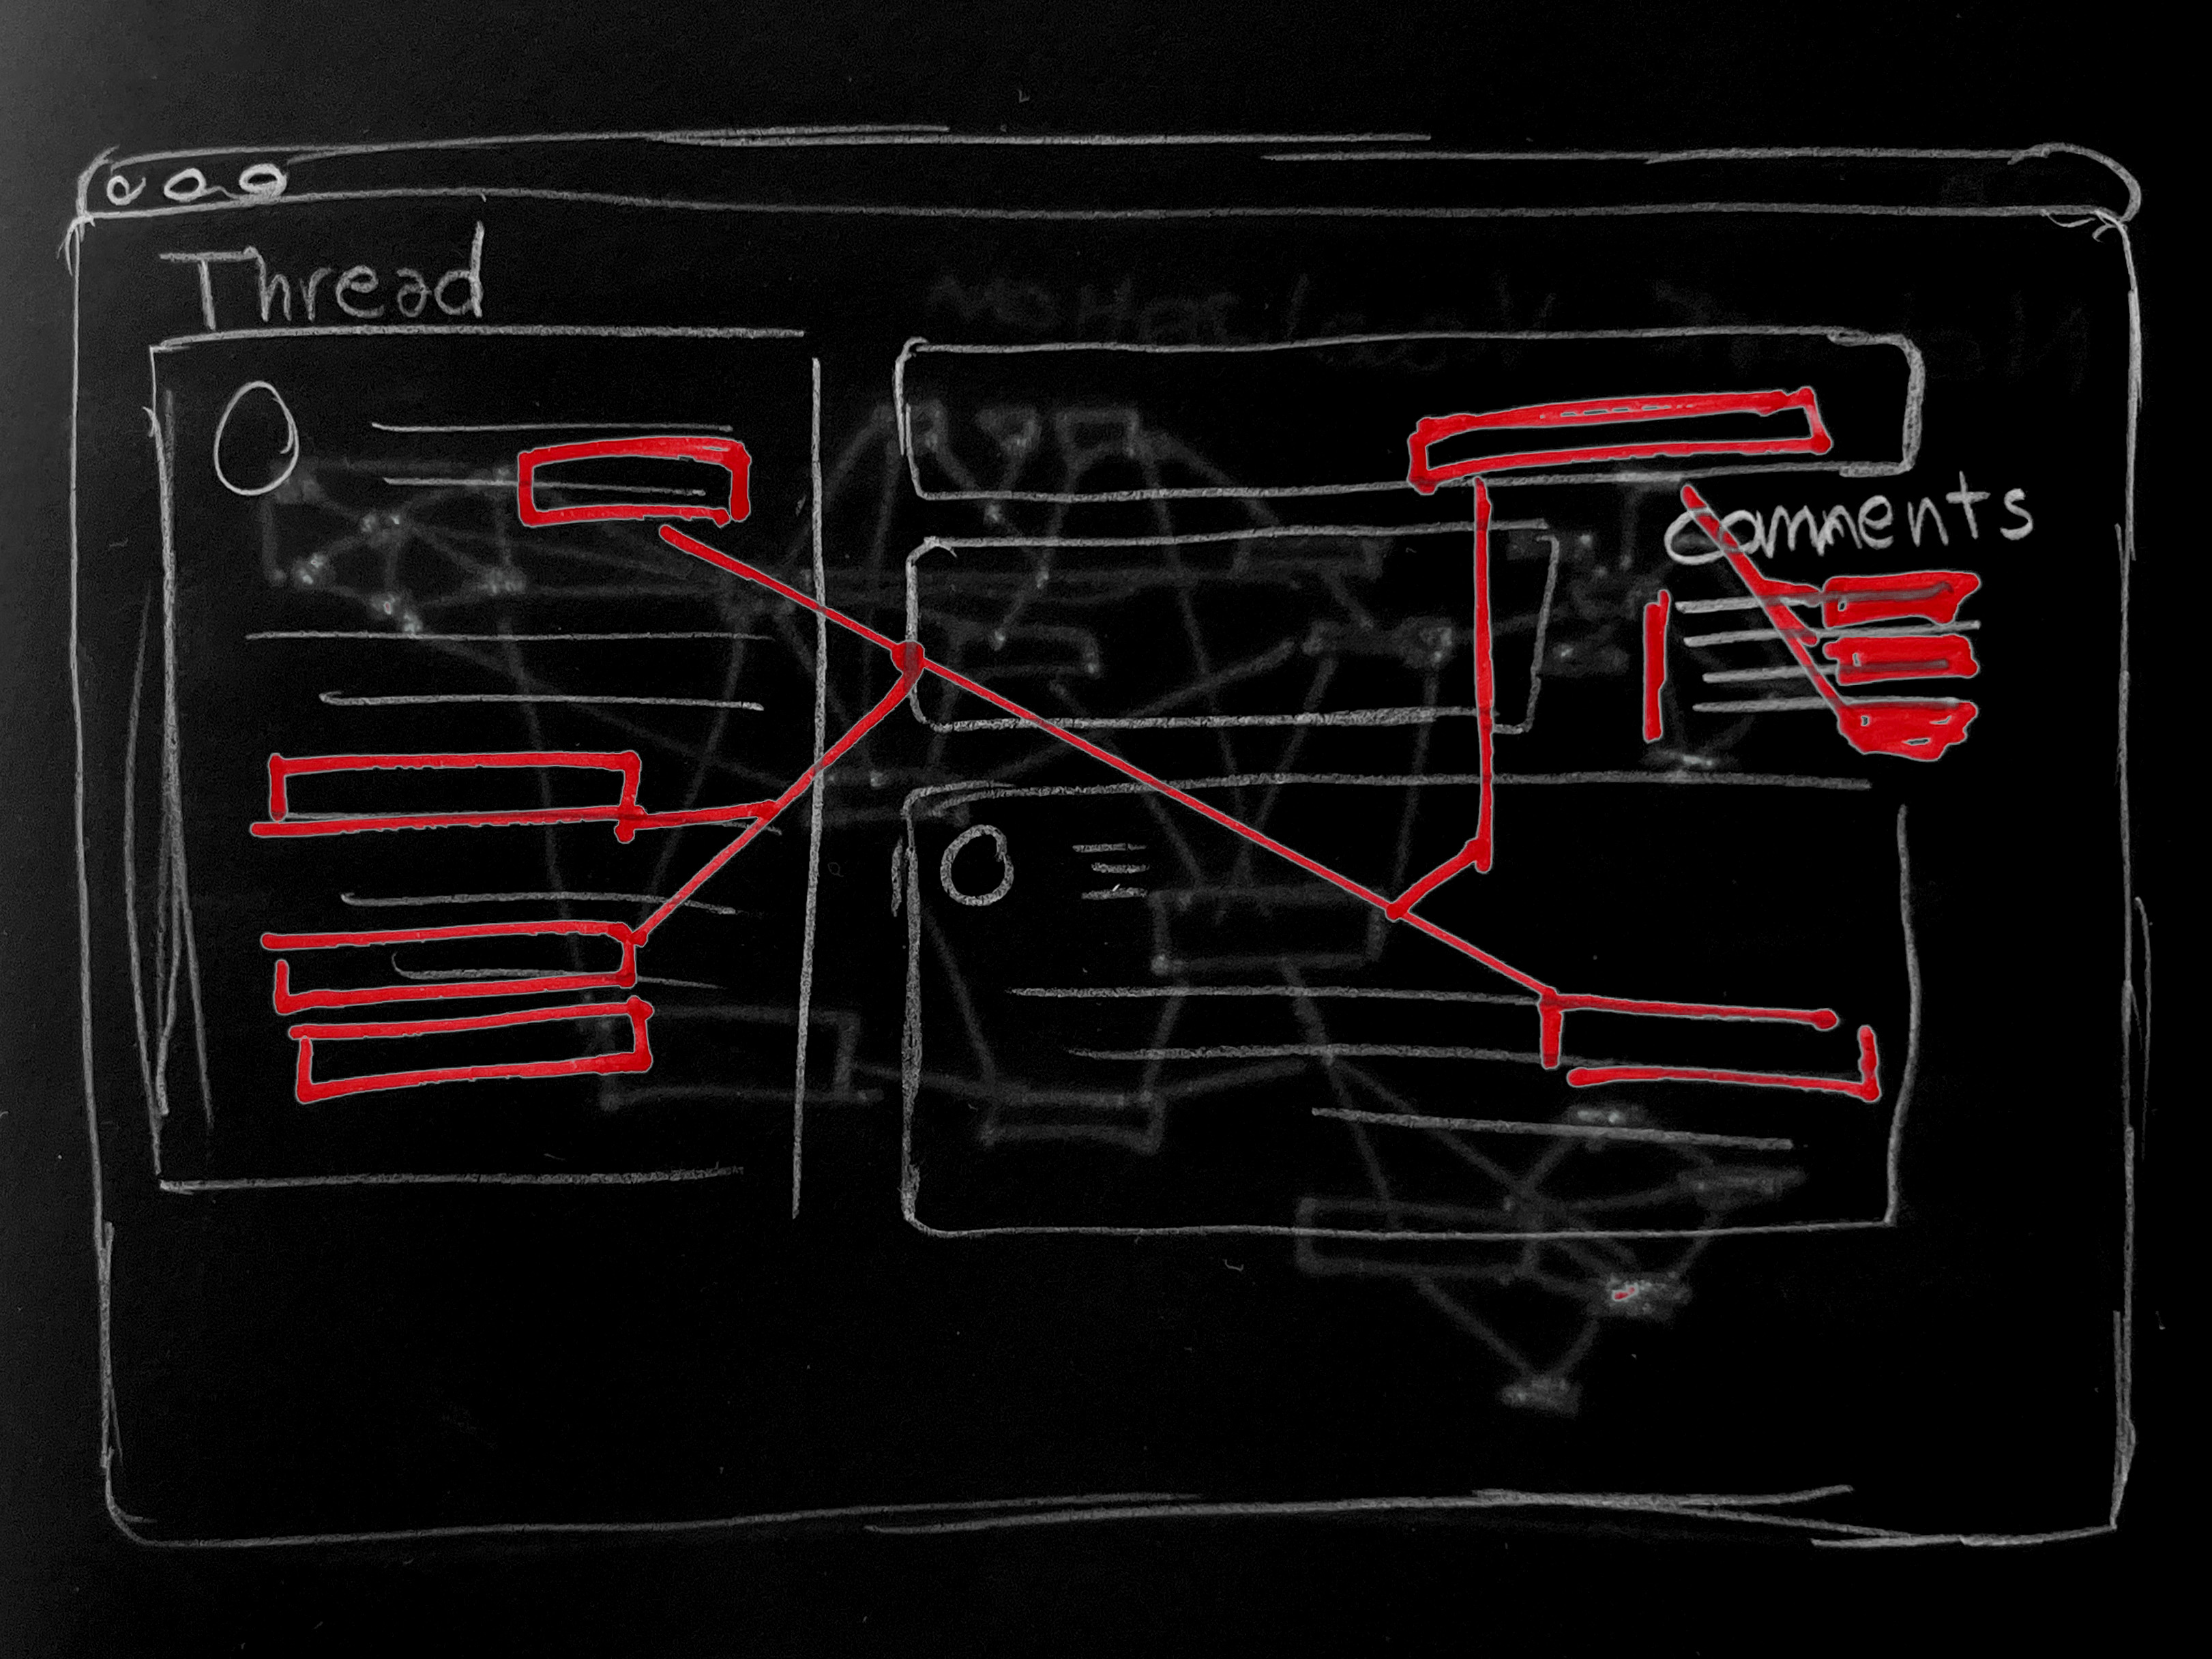 Thread
comments